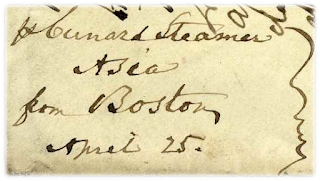 pr Cunard Steamer
Asia
from Boston,
April 25.